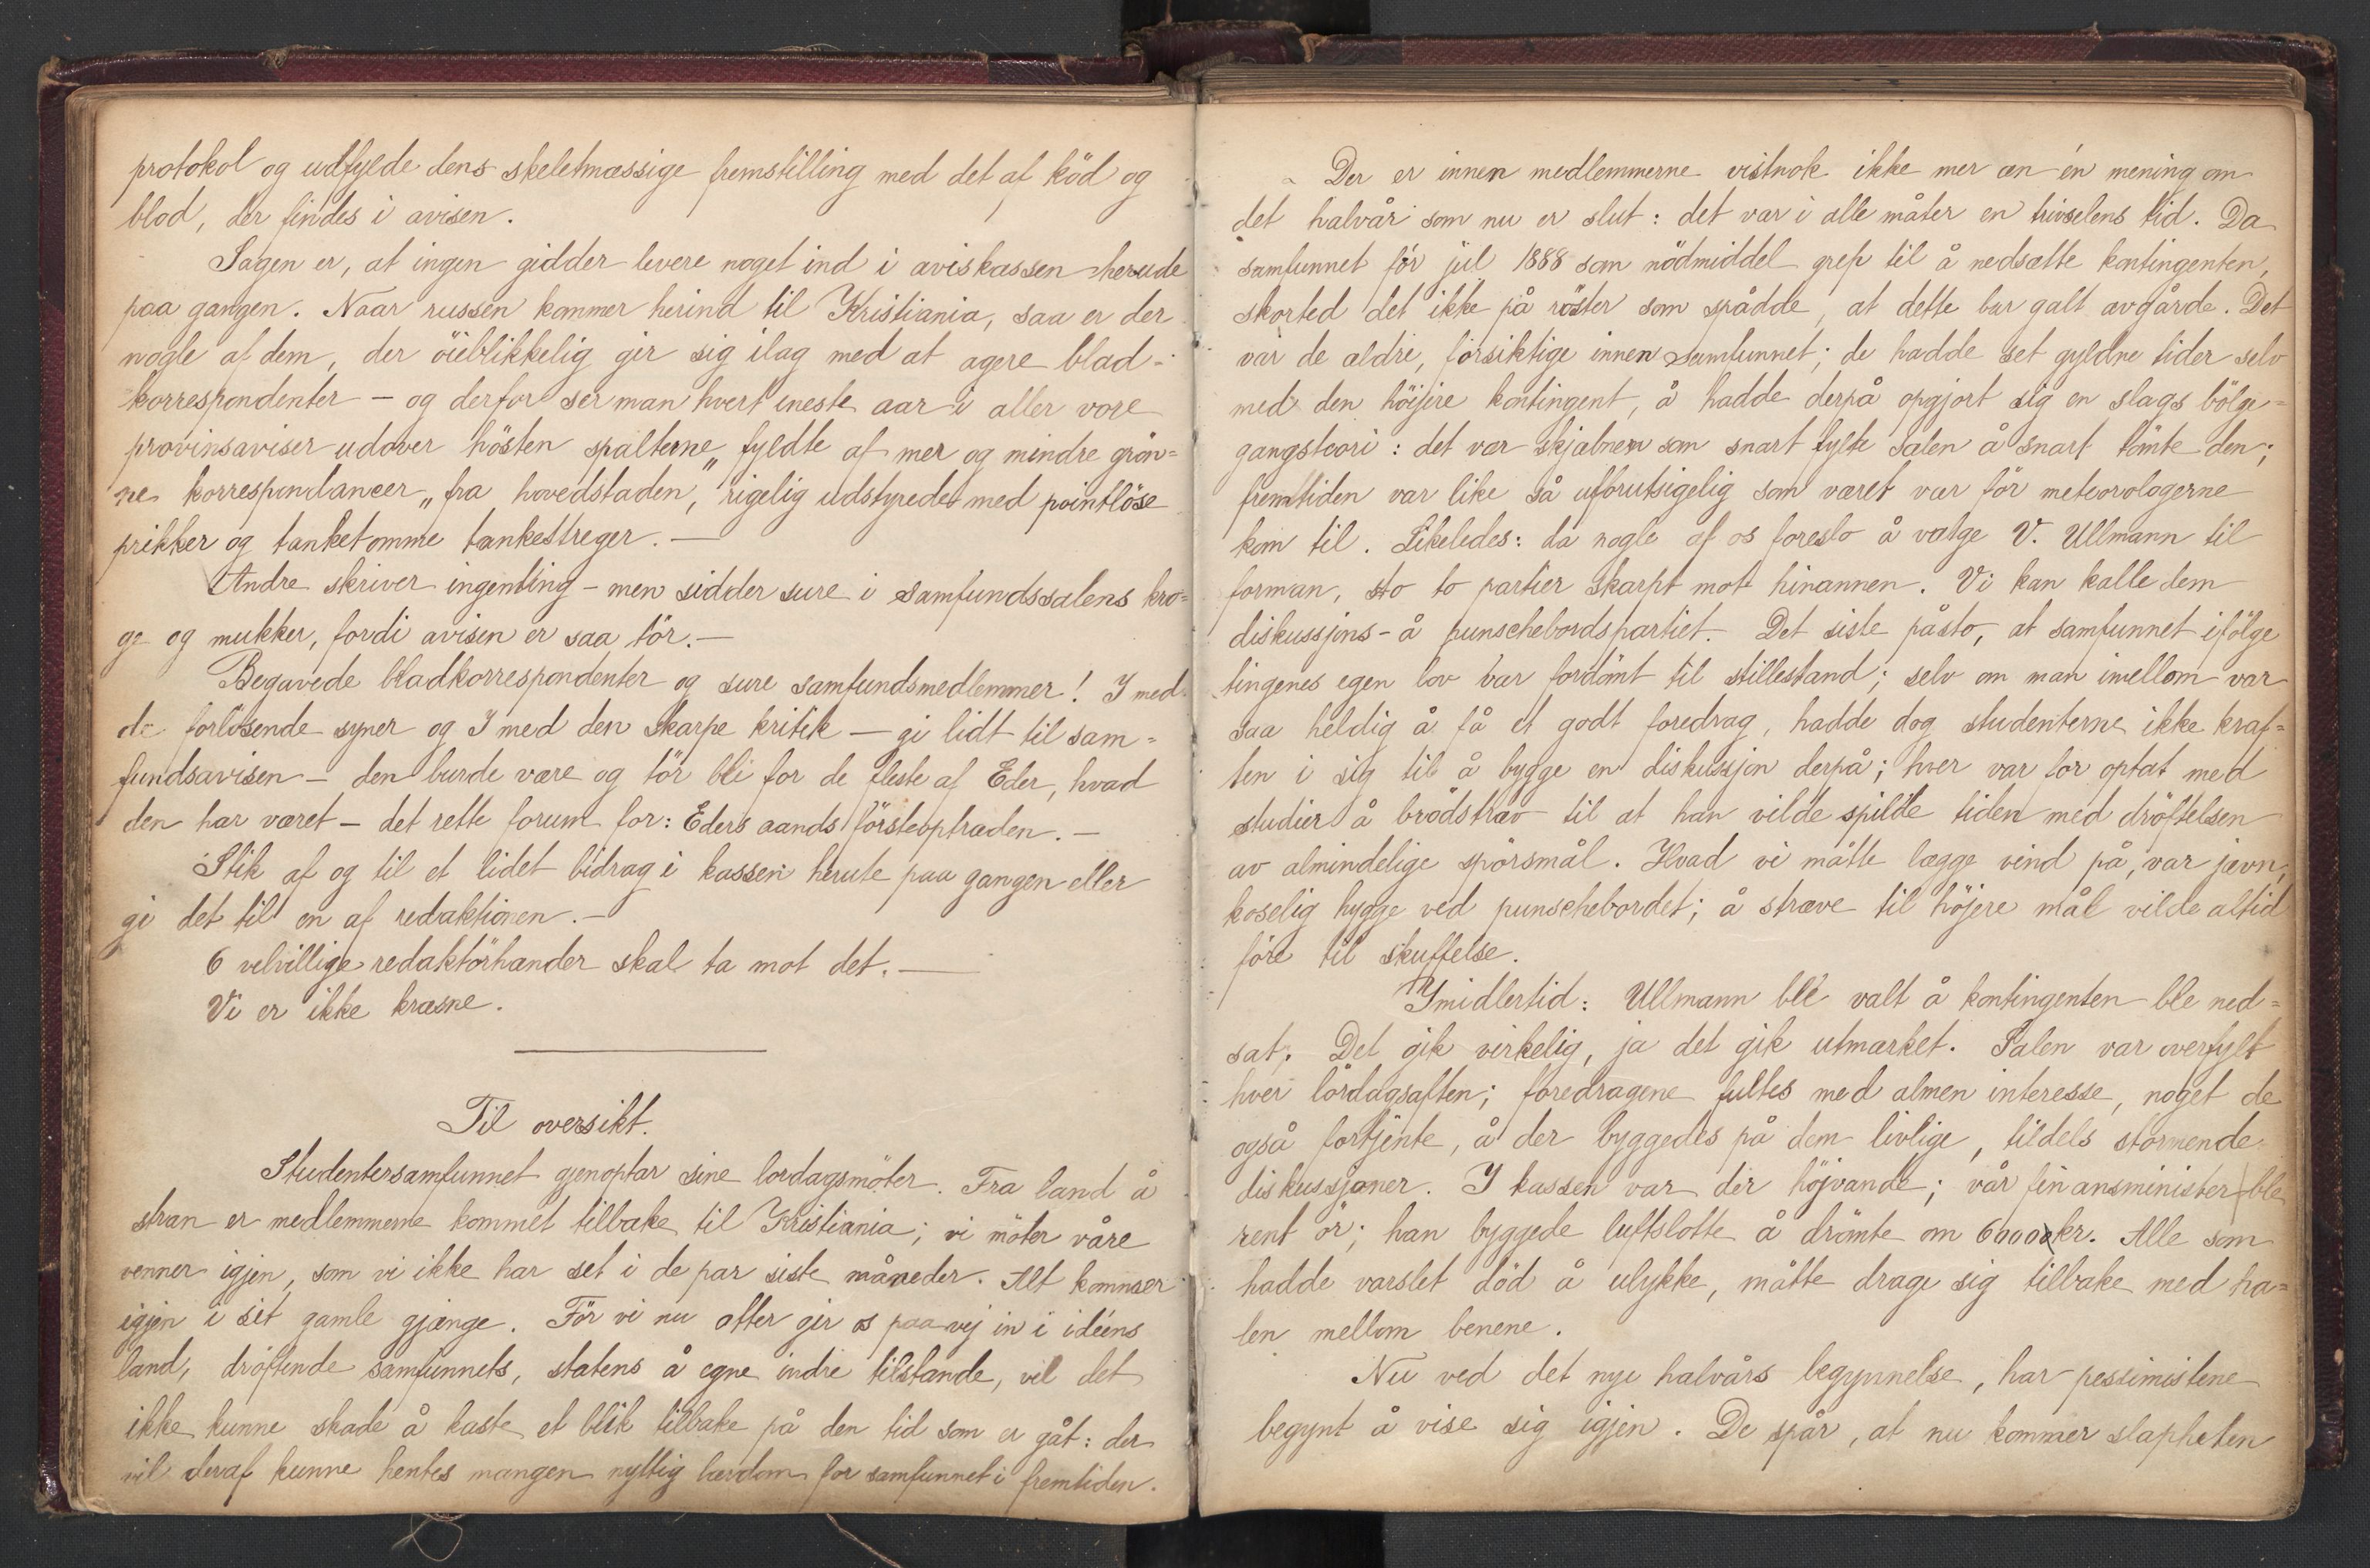 protokol og udfylde dens skeletmæssige fremstilling med det af köd og
blod, der findes i avisen.
Sagen er, at ingen gidder levere noget ind i aviskassen herude
paa gangen. Naar russen kommer herind til Kristiania, saa er der
nogle af dem, der öieblikkelig gir sig ilag med at agere blad-
korrespondenter – og derfor ser man hvert eneste aar i aller vore
provinsaviser udover hösten spalterne fyldte af mer og mindre grön-
ne korrespondancer „fra hovedstaden," rigelig udstyrede med pointlöse
prikker og tanketomme tankestreger. —
Andre skriver ingenting – men sidder sure i samfundssalens kro=
ge og mukker, fordi avisen er saa tör. —
Begavede bladkorrespondenter og sure samfundsmedlemmer! I med
de forlösende syner og I med den skarpe kritik – gi lidt til sam=
fundsavisen – den burde være og tör bli for de fleste af Eder, hvad
den har været – det rette forum for: Eders aands försteoptræden. –
Stik af og til et lidet bidrag i kassen herute paa gangen eller
gi det til en af redaktionen. –
6 velvillige redaktörhænder skal ta mot det. —
Vi er ikke kræsne.
Til oversikt.
Studentersamfunnet gjenoptar sine lördagsmöter. Fra land å
stran er medlemmerne kommet tilbake til Kristiania; vi möter våre
venner igjen, som vi ikke har set i de par siste måneder. Alt kommer
igjen i sit gamle gjænge. För vi nu atter gir os paa vej in i idéens
land, dröftende samfunnets, statens å egne indre tilstande, vil det
ikke kunne skade å kaste et blik tilbake på den tid som er gåt: der
vil deraf kunne hentes mangen nyttig lærdom for samfunnet i fremtiden.
Der er innen medlemmerne vistnok ikke mer æn én mening om
det halvår som nu er slut: det var i alle måter en trivselens tid. Da
samfunnet för jul 1888 som nödmiddel grep til å nedsætte kontingenten,
skorted det ikke på röster som spådde, at dette bar galt avgårde. Det
var de ældre, forsiktige innen samfunnet; de hadde set gyldne tider selv
med den höijere kontingent, å hadde derpå opgjort sig en slags bölge=
gangsteori: det var skjæbnen som snart fylte salen å snart tömte den;
fremtiden var like så uforutsigelig som været var för meteorologerne
kom til. Likeledes: da nogle af os foreslo å vælge V. Ullmann til
forman, sto to partier skarpt mot hinannen. Vi kan kalle dem
diskussjons- å punschebordspartiet. Det siste påsto, at samfunnet ifölge
tingenes egen lov var fordömt til stillestand; selv om man imellom var
saa heldig å få et godt foredrag, hadde dog studenterne ikke kraf=
ten i sig til å bygge en diskussjon derpå; hver var for optat med
studier å brödstræv til at han vilde spilde tiden med dröftelsen
av almindelige spörsmål. Hvad vi måtte lægge vind på, var jævn,
koselig hygge ved punschebordet; å stræve til höjere mål vilde altid
före til skuffelse.
Imidlertid: Ullmann ble valt å kontingenten ble ned=
sat. Det gik virkelig, ja det gik utmærket. Salen var overfylt
hver lördagsaften; foredragene fultes med almen interesse, noget de
også fortjente, å der byggedes på dem livlige, tildels stormende
diskussjoner. I kassen var der höjvande; vår finansminister ble
rent ör; han byggede luftslotte å drömte om 6000 kr. Alle som
hadde varslet död å ulykke, måtte drage sig tilbake med ha=
len mellom benene.
Nu ved det nye halvårs begynnelse, har pessimistene
begynt å vise sig igjen. De spår, at nu kommer slapheten